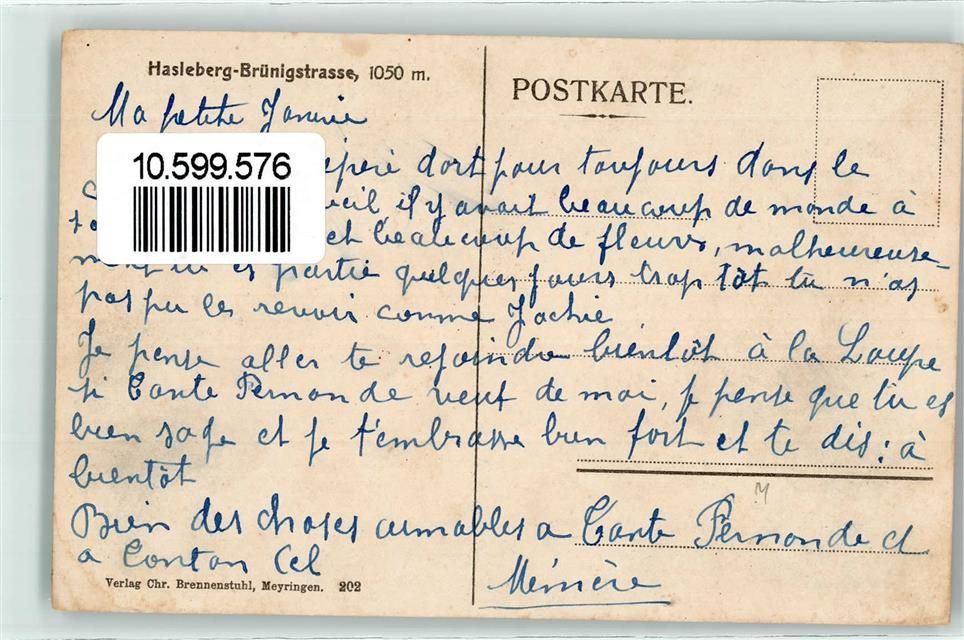 Hasleberg-Brünigstrasse, 1050 m.
POSTKARTE.
Ma petite Janine
10.599.576
pépère dort pour toujours dans le
il y avait beaucoup de monde à
et beaucoup de fleurs, malheureuse-
ment tu es partie quelques jours trop tôt tu n'as
pas pu le revoir comme Jackie
Je pense aller te rejoindre bientôt à la Loupe
si Tante Fernande veut de moi, je pense que tu es
bien sage et je t'embrasse bien fort et te dis : à
bientôt
Bien des choses aimables a Tante Fernande et
a Tonton Cel
Mémère
Verlag Chr. Brennenstuhl, Meyringen. 202